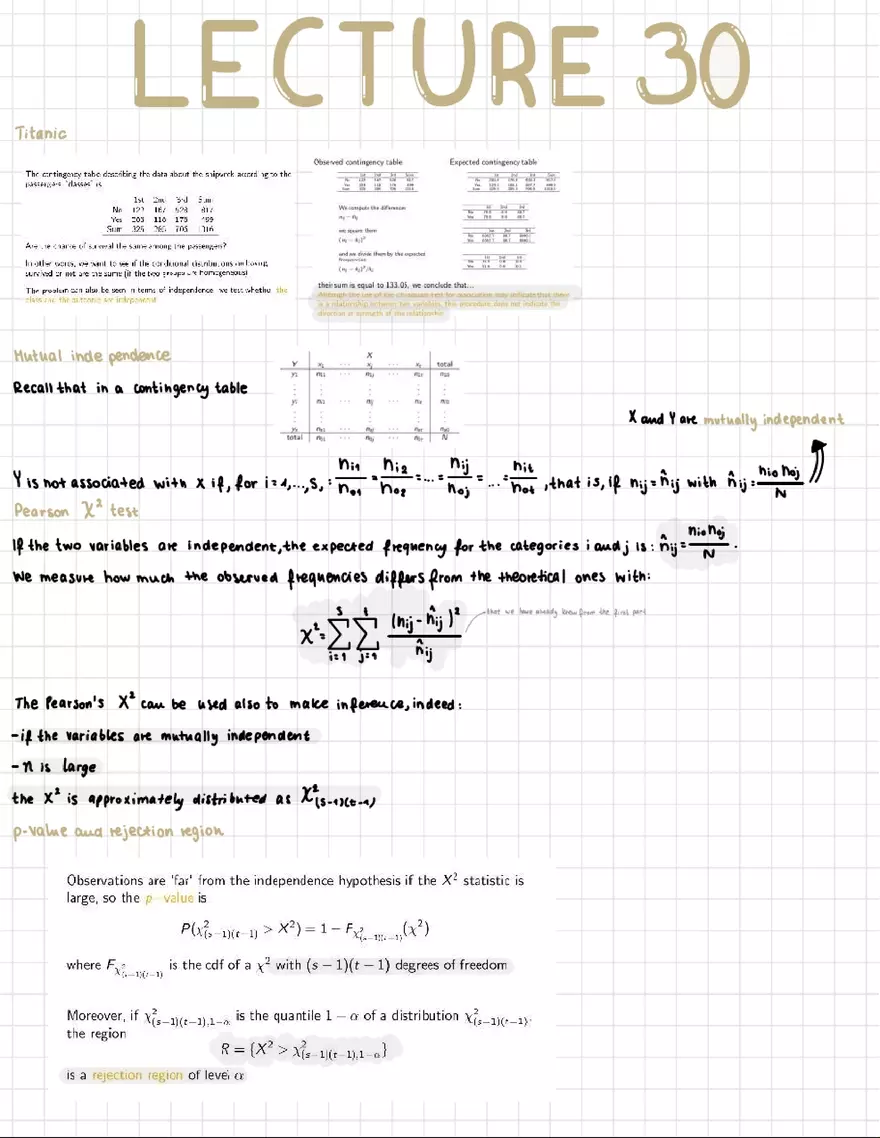 LECTURE 30
Titanic
The contingency table describing the data about the shipwreck according to the
passengers "classes" is
1st 2nd 3rd Sum
No 122 167 528 817
Yes 203 118 178 499
Sum 325 285 706 1316
Are the chance of survival the same among the passengers?
In other words, we want to see if the conditional distributions on having
survived or not are the same (if the two groups are homogeneous)
The problem can also be seen in terms of independence: we test whether the
class and the outcome are independent
Observed contingency table
Expected contingency table
We compute the difference
we square them
and we divide them by the expected
frequencies
their sum is equal to 133.05, we conclude that...
Although the use of the chi-square test for association may indicate that there
is a relationship between two variables, this procedure does not indicate the
direction or strength of the relationship
Mutual independence
Recall that in a contingency table
X
Y x₁ ... xⱼ ... xₜ total
total
X and Y are mutually independent
Y is not associated with X if, for i=1,...,S, : ni1/no1 = ni2/no2 = ... = nij/noj = ... = nit/not , that is, if nij = n̂ij with n̂ij = nio noj/N
Pearson χ² test
If the two variables are independent, the expected frequency for the categories i and j is : n̂ij = nio noj/N .
We measure how much the observed frequencies differs from the theoretical ones with:
χ² = Σ(i=1, s) Σ(j=1, t) (nij - n̂ij)²/n̂ij
that we have already know from the first part
The Pearson's X² can be used also to make inference, indeed :
-if the variables are mutually independent
-n is large
the X² is approximately distributed as χ²(s-1)(t-1)
p-value and rejection region
Observations are 'far' from the independence hypothesis if the X² statistic is
large, so the p-value is
P(χ²(s−1)(t−1) > X²) = 1 − Fχ²(s−1)(t−1)(χ²)
where Fχ²(s−1)(t−1) is the cdf of a χ² with (s − 1)(t − 1) degrees of freedom
Moreover, if χ²(s−1)(t−1),1−α is the quantile 1 − α of a distribution χ²(s−1)(t−1),
the region
R = {X² > χ²(s−1)(t−1),1−α}
is a rejection region of level α